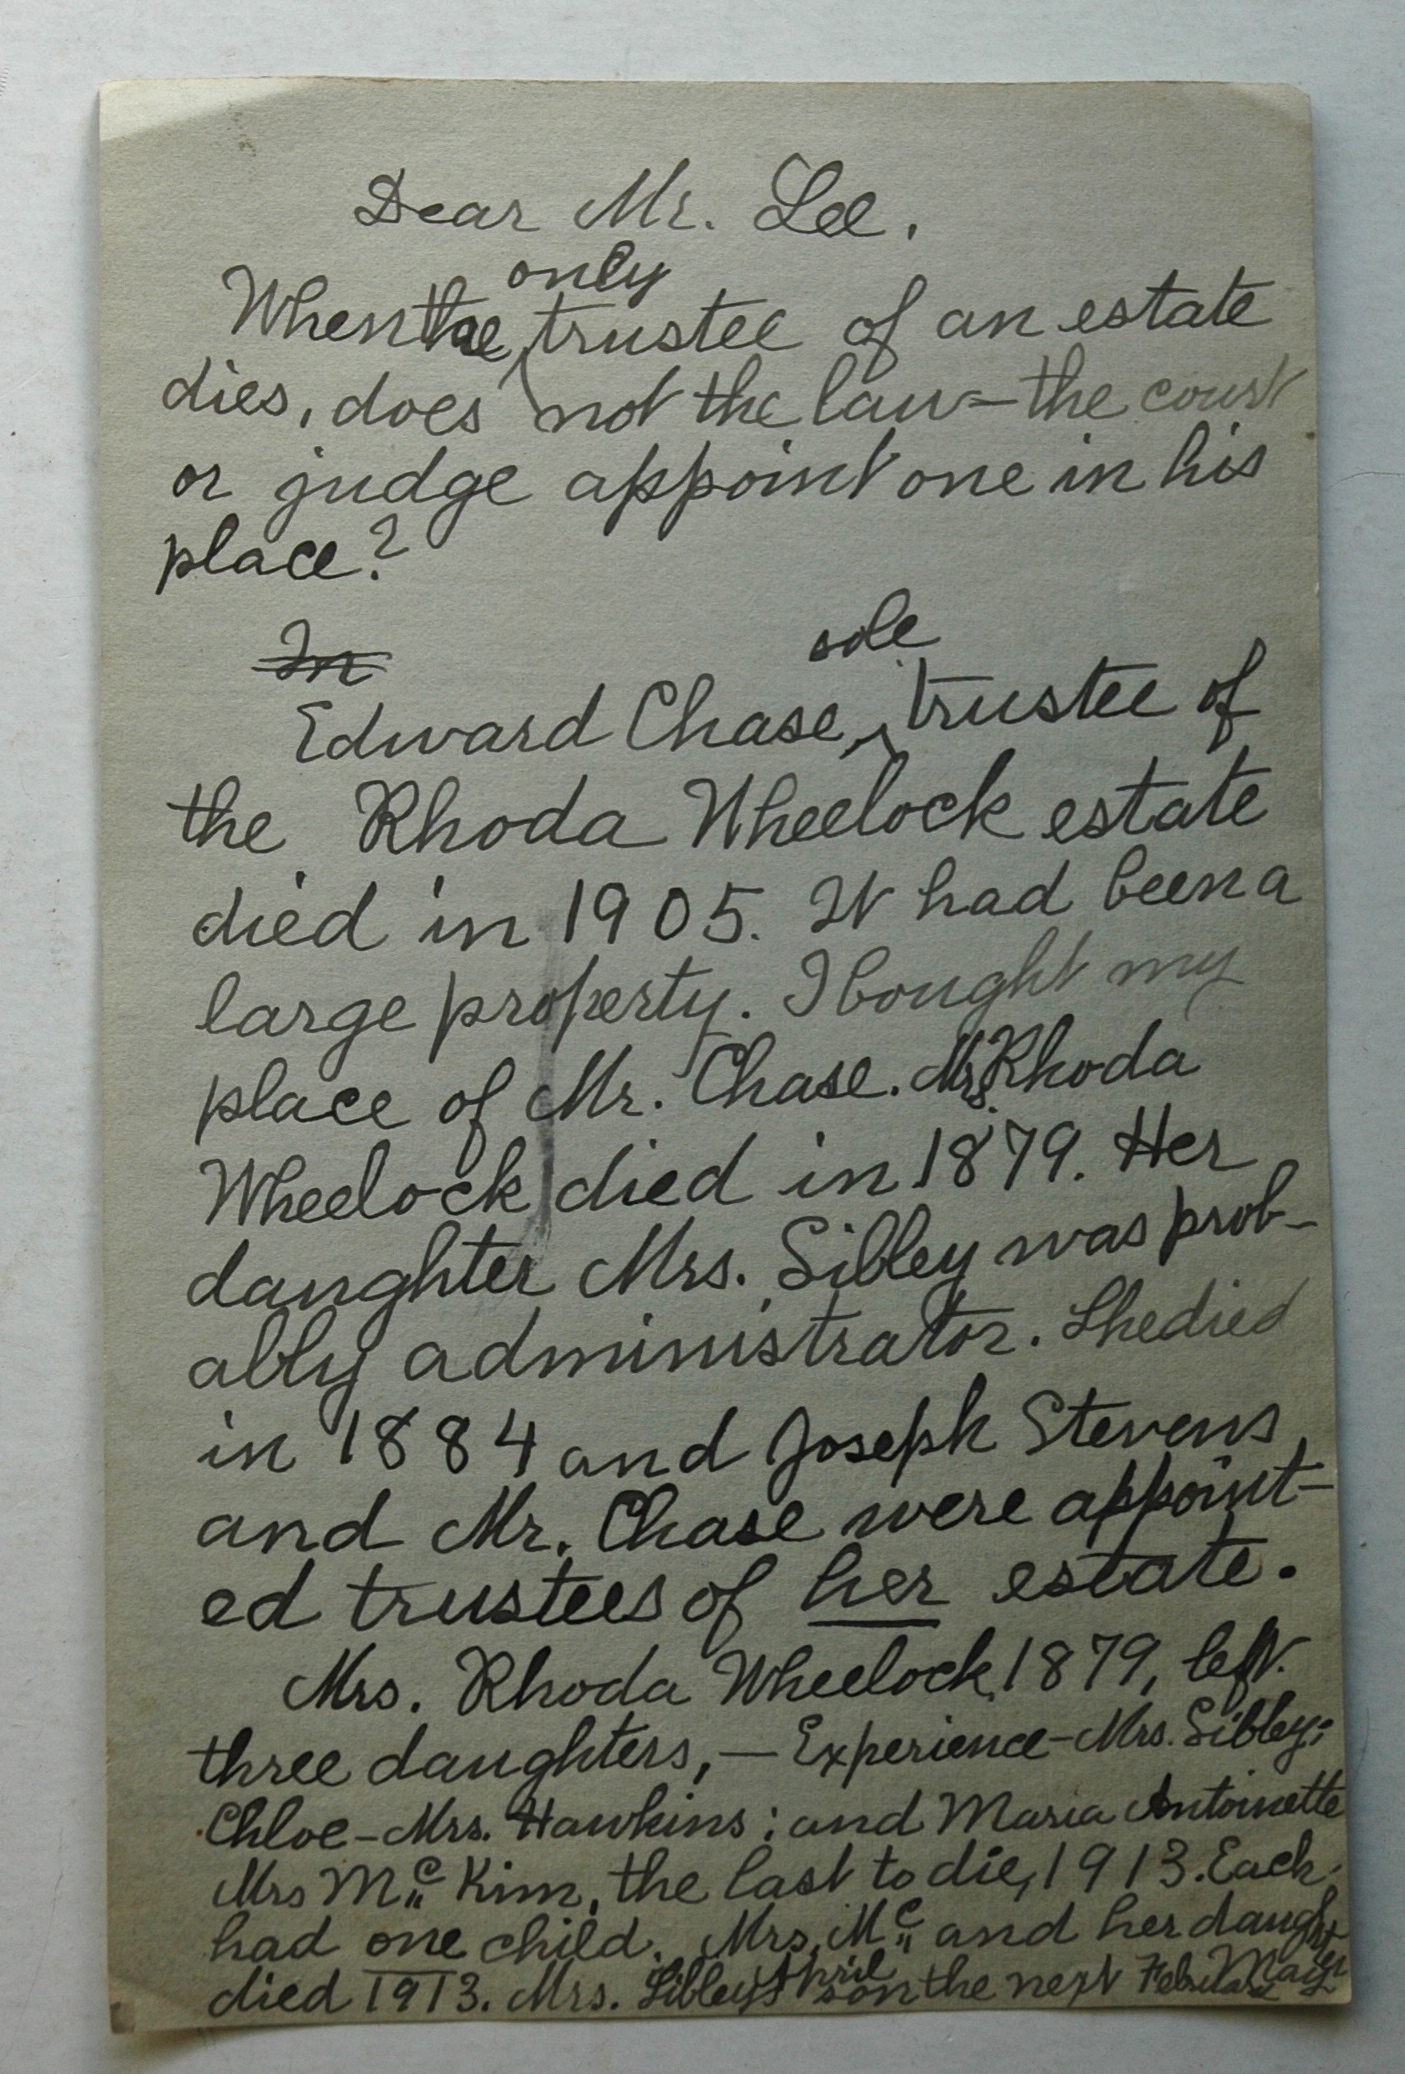 Dear Mr. Lee.
only
When the trustee of an estate
dies, does not the law – the court
or judge appoint one in his
place?
In
sole
Edward Chase, trustee of
the Rhoda Wheelock estate
died in 1905. It had been a
large property. I bought my
place of Mr. Chase. Mrs. Rhoda
Wheelock died in 1879. Her
daughter Mrs. Sibley was prob-
ably administrator. She died
in 1884 and Joseph Stevens
and Mr. Chase were appoint-
ed trustees of her estate.
Mrs. Rhoda Wheelock, 1879, left
three daughters, — Experience – Mrs. Sibley;
Chloe – Mrs. Hawkins; and Maria Antoinette
Mrs McKim, the last to die, 1913. Each
had one child. Mrs. Mc and her daughter
April May
died 1913. Mrs. Sibley's son the next February